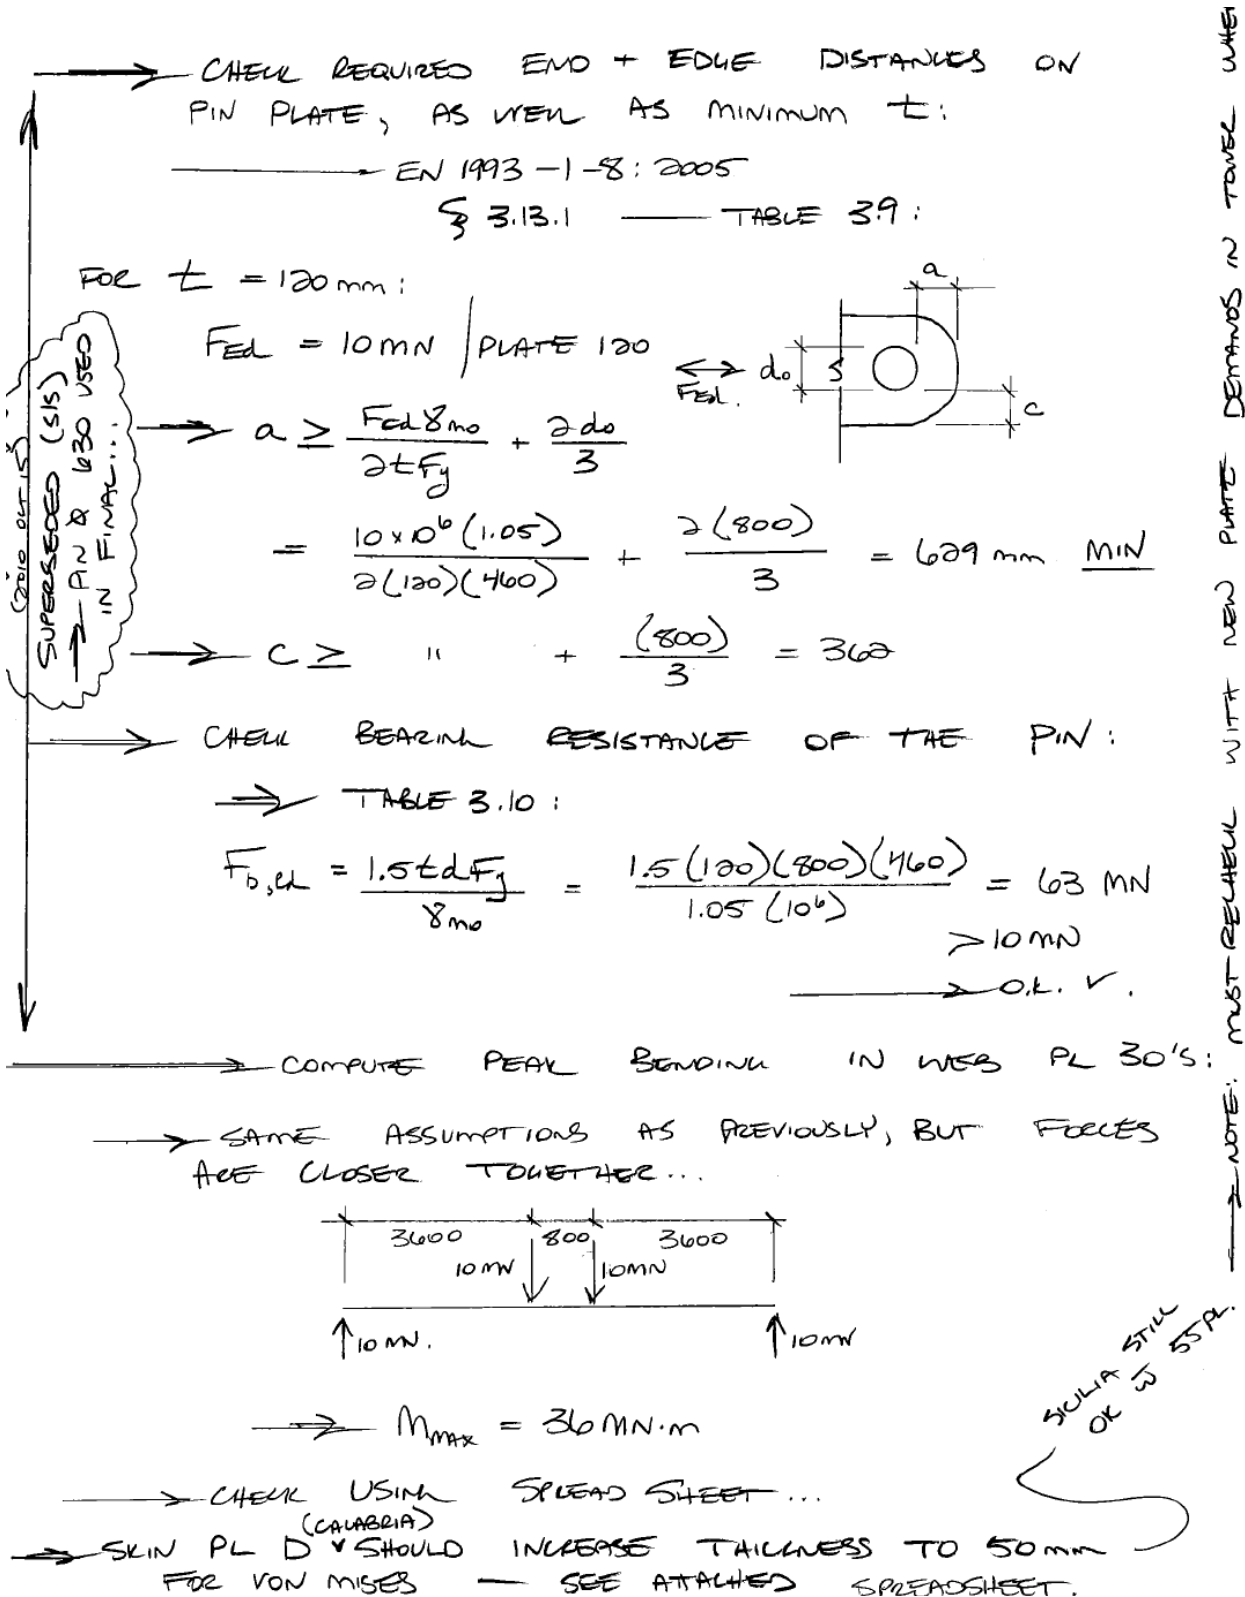 CHECK REQUIRED END + EDGE DISTANCES ON
PIN PLATE, AS WELL AS MINIMUM t:
EN 1993-1-8: 2005
§ 3.13.1 — TABLE 3.9:
FOR t = 120 mm:
FEd = 10MN / PLATE 120
a
d₀
FEd.
c
a ≥ FEd γm0 / 2tFy + 2d₀ / 3
= 10×10⁶(1.05) / 2(120)(460) + 2(800) / 3 = 629 mm MIN
c ≥ " + (800) / 3 = 362
(2010 OCT 15)
SUPERSEDED (SLS)
→ AN & 630 USED
IN FINAL...
CHECK BEARING RESISTANCE OF THE PIN:
TABLE 3.10:
Fb,Ed = 1.5tdFy / γm0 = 1.5(120)(800)(460) / 1.05(10⁶) = 63 MN
> 10 MN
→ O.K. ✓.
COMPUTE PEAK BENDING IN WEB PL 30'S:
SAME ASSUMPTIONS AS PREVIOUSLY, BUT FORCES
ARE CLOSER TOGETHER...
3600 800 3600
10MN 10MN
10MN. 10MN
Mmax = 36 MN·m
CHECK USING SPREAD SHEET...
(CALABRIA)
SKIN PL D SHOULD INCREASE THICKNESS TO 50mm
FOR VON MISES — SEE ATTACHED SPREADSHEET.
SICILIA STILL
OK W 55 PL.
→ NOTE: MUST RECHECK WITH NEW PLATE DEMANDS IN TOWER WHEN